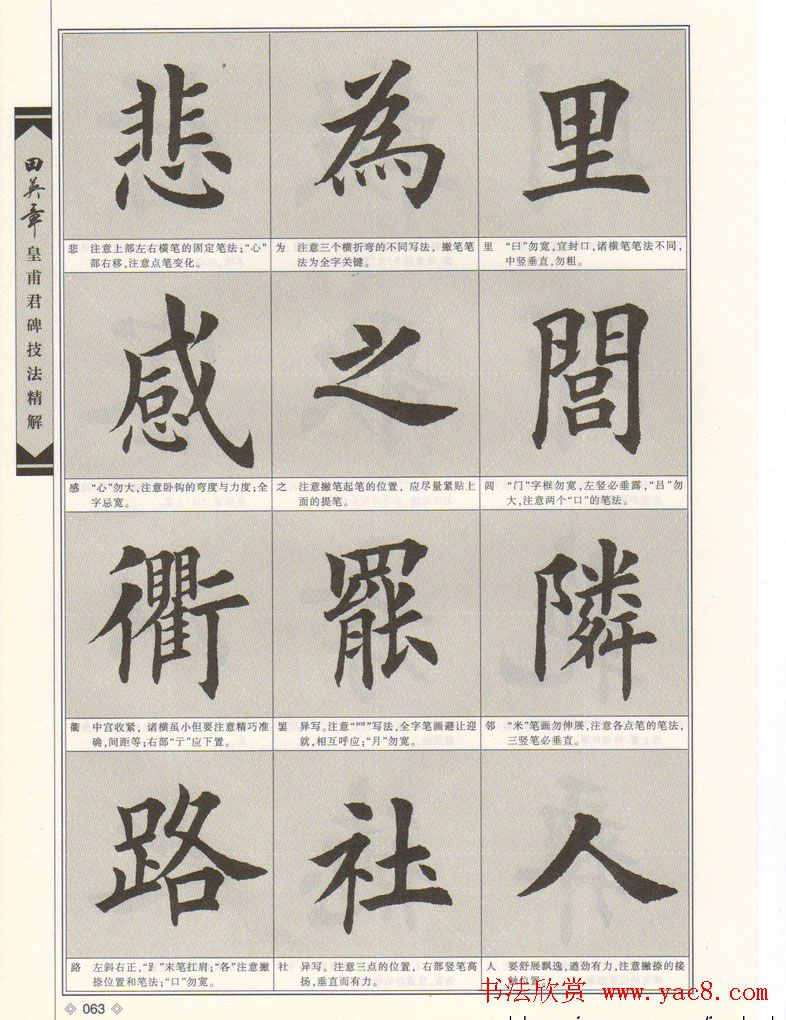 田英章
皇甫君碑技法精解
悲 為 里
悲 注意上部左右横笔的固定笔法；“心”
部右移，注意点笔变化。
为 注意三个横折弯的不同写法，撇笔笔
法为全字关键。
里 “曰”勿宽，宜封口，诸横笔笔法不同，
中竖垂直，勿粗。
感 之 閭
感 “心”勿大，注意卧钩的弯度与力度；全
字忌宽。
之 注意撇笔起笔的位置，应尽量紧贴上
面的提笔。
闾 “门”字框勿宽，左竖必垂露，“吕”勿
大，注意两个“口”的笔法。
衢 罷 隣
衢 中宫收紧，诸横虽小但要注意精巧准
确，间距等；右部“亍”应下置。
罢 异写。注意“罒”写法，全字笔画避让迎
就，相互呼应；“月”勿宽。
邻 “米”笔画勿伸展，注意各点笔的笔法，
三竖笔必垂直。
路 社 人
路 左斜右正，“𧾷”末笔扛肩；“各”注意撇
捺位置和笔法；“口”勿宽。
社 异写。注意三点的位置，右部竖笔高
扬，垂直而有力。
人 要舒展飘逸，遒劲有力，注意撇捺的接
位置。
书法欣赏 www.yac8.com
063